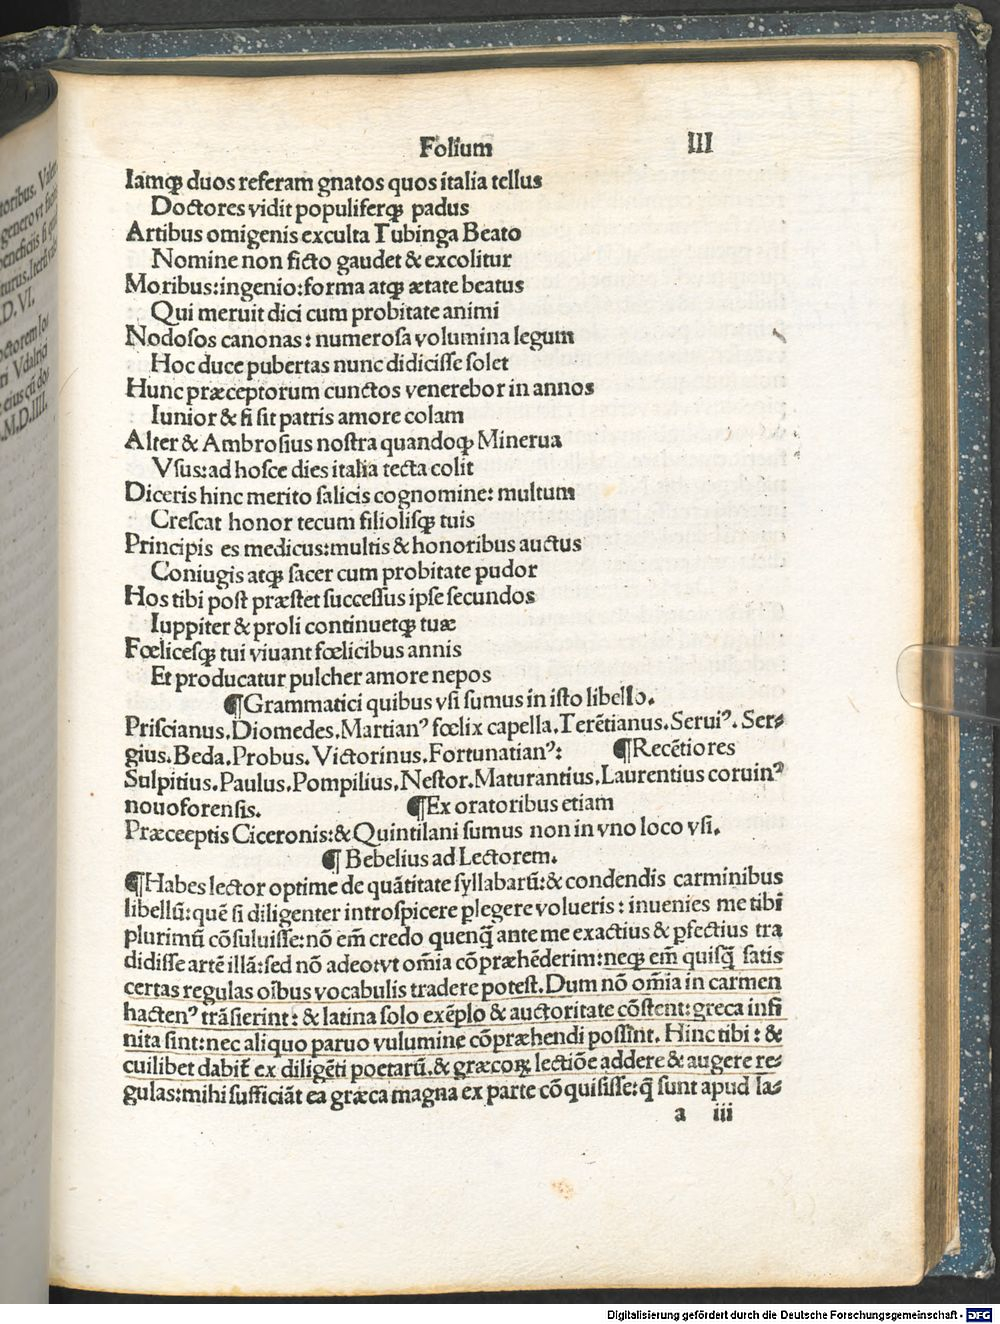 Folium III
Iamqꝫ duos referam gnatos quos italia tellus
Doctores vidit populiferqꝫ padus
Artibus omigenis exculta Tubinga Beato
Nomine non ficto gaudet & excolitur
Moribus:ingenio:forma atqꝫ ætate beatus
Qui meruit dici cum probitate animi
Nodosos canonas: numerosa volumina legum
Hoc duce pubertas nunc didicisse solet
Hunc præceptorum cunctos venerebor in annos
Iunior & si sit patris amore colam
Alter & Ambrosius nostra quandoqꝫ Minerua
Vsus:ad hosce dies italia tecta colit
Diceris hinc merito salicis cognomine: multum
Crescat honor tecum filiolisqꝫ tuis
Principis es medicus:multis & honoribus auctus
Coniugis atqꝫ sacer cum probitate pudor
Hos tibi post præstet successus ipse secundos
Iuppiter & proli continuetqꝫ tuæ
Fœlicesqꝫ tui viuant fœlicibus annis
Et producatur pulcher amore nepos
¶Grammatici quibus vsi sumus in isto libello.
Priscianus.Diomedes.Martianꝰ fœlix capella.Terẽtianus.Seruiꝰ. Ser⸗
gius.Beda.Probus.Victorinus.Fortunatianꝰ: ¶Recẽtiores
Sulpitius.Paulus.Pompilius.Nestor.Maturantius.Laurentius coruinꝰ
nouoforensis. ¶Ex oratoribus etiam
Præceeptis Ciceronis:& Quintilani sumus non in vno loco vsi.
¶ Bebelius ad Lectorem.
¶Habes lector optime de quãtitate syllabarũ:& condendis carminibus
libellũ:quẽ si diligenter introspicere ꝑlegere volueris: inuenies me tibi
plurimũ cõsuluisse:nõ em̃ credo quenq̃ ante me exactius & ꝑfectius tra
didisse artẽ illã:sed nõ adeo:vt om̃ia cõpræhẽderim:neqꝫ em̃ quisq̃ satis
certas regulas oĩbus vocabulis tradere potest.Dum nõ om̃ia in carmen
hactenꝰ trãsierint: & latina solo exẽplo & auctoritate cõstent:greca infi
nita sint:nec aliquo paruo vulumine cõpræhendi possint. Hinc tibi: &
cuilibet dabit̃ ex diligẽti poetarũ.& græcoꝝ lectiõe addere & augere re⸗
gulas:mihi sufficiãt ea græca magna ex parte cõquisisse:q̃ sunt apud la⸗
a iii
Digitalisierung gefördert durch die Deutsche Forschungsgemeinschaft - DFG